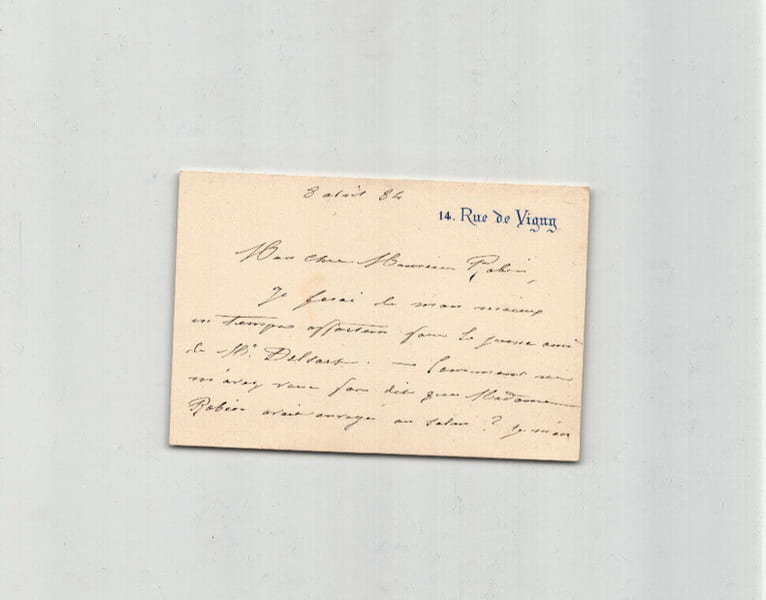 8 avril 84
14. Rue de Vigny
Mon cher Monsieur Robin,
Je ferai de mon mieux
en temps opportun pour le jeune ami
de Mr. Delsart. — Comment ne
m'avez vous pas dit que Madame
Robin avait envoyé au salon ? Je m'en